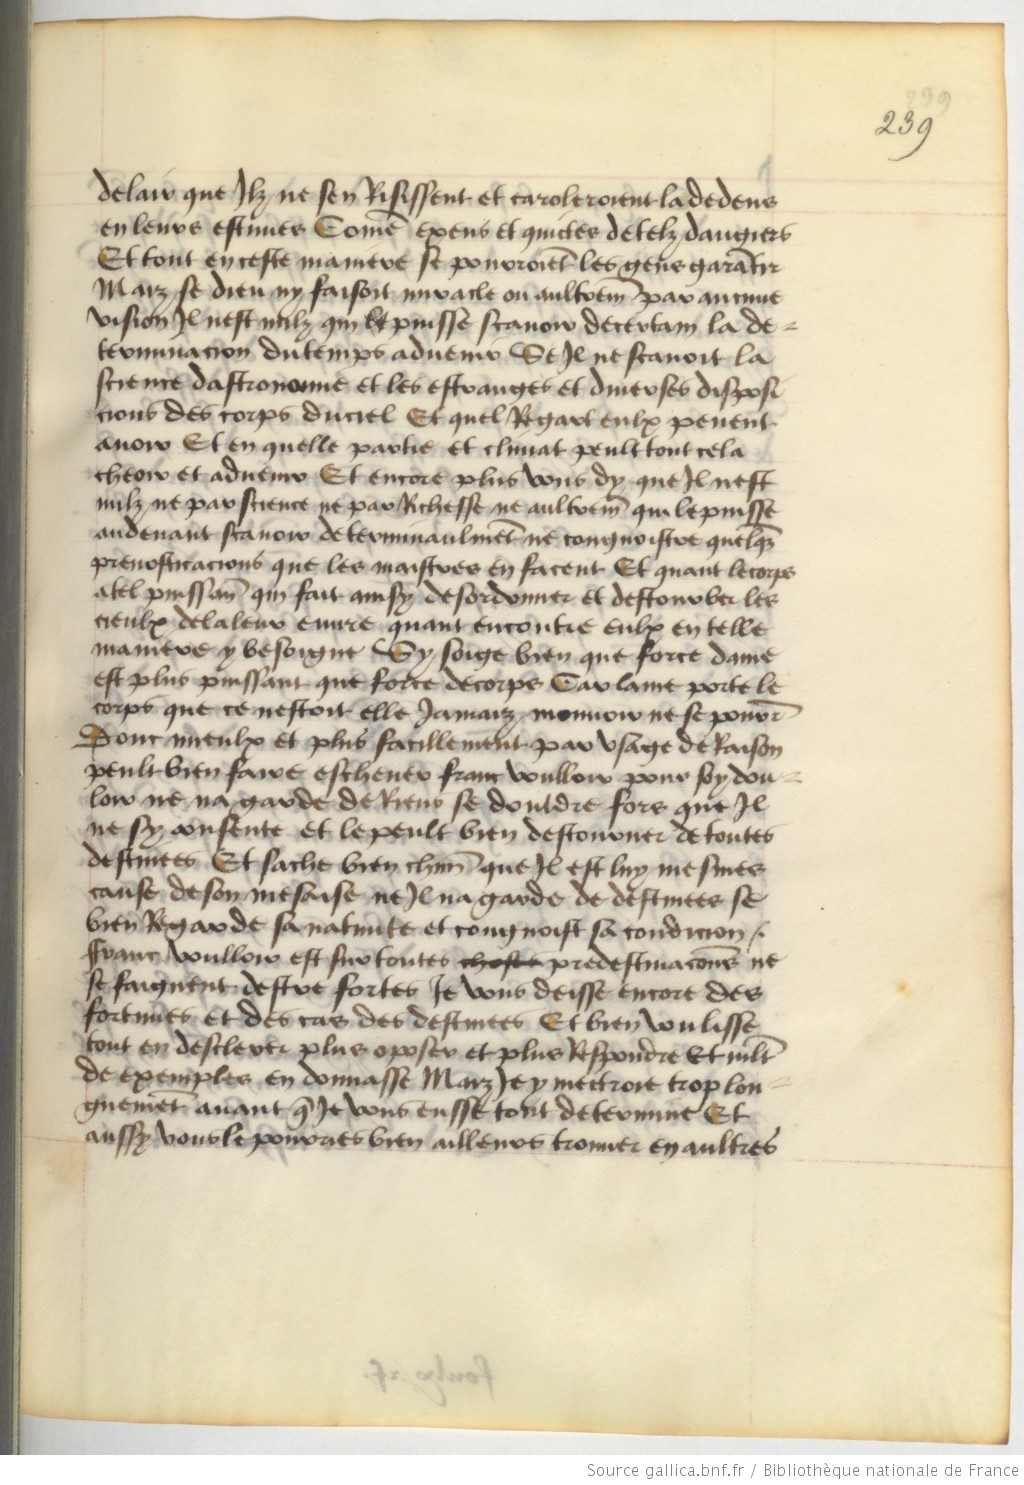 239
239
delair que Ilz ne sen Risissent et caroleroient la dedens
en leurs estuues Comē expeus et quictes de telz dangiers
Et tout en ceste maniere se pourroiēt les gens garātir
Maiz se dieu ny faisoit miracle ou aultremt par aucune
vision Il nest nulz qui le puisse scauoir de certain la de-
terminacion du temps aduenir Se Il ne scauoit la
science dastronomie et les estranges et diuerses disposi
cions des corps du ciel Et quel Regart eulx peuent
auoir Et en quelle partie et climat peult tout cela
cheoir et aduenir Et encore plus vous dy que Il nest
nulz ne par science ne par Richesse ne aultremt qui le puisse
au deuant scauoir determinaulmēt ne congnoistre quelq̄
prenosticacions que les maistres en facent Et quant le corps
a tel puissan̄ qui fait ainsy desordonner et destourber les
cieulx de la leur euure quant encontre eulx en telle
maniere y besoigne Sy soige bien que force dame
est plus puissant que force de corps Car lame porte le
corps que ce nestoit elle Jamaiz mouuoir ne se pourr̄
Donc mieulx et plus facillement par vsage de Raison
peult bien faire escheuer franc voulloir pour soy dou-
loir ne na garde de Riens se doutdre fors que Il
ne sy consente et le peult bien destourner de toutes
destinees Et sache bien chūn que Il est luy mesmes
cause de son mesaise ne Il na garde de destinees se
bien Regarde sa natiuite et congnoist sa condicion /.
Franc voulloir est sur toutes choses predestinacōns ne
se faignent destre fortes Je vous deisse encore des
fortunes et des cas des destinees Et bien voulisse
tout en desclerer plus oposer et plus Respondre Et mlt
de exemples en donnasse Maiz Je y mectroie trop lon-
guemēt auant q̄ Je vous eusse tout determine Et
aussy vous le pourries bien ailleurs trouuer en aultres
Source gallica.bnf.fr / Bibliothèque nationale de France